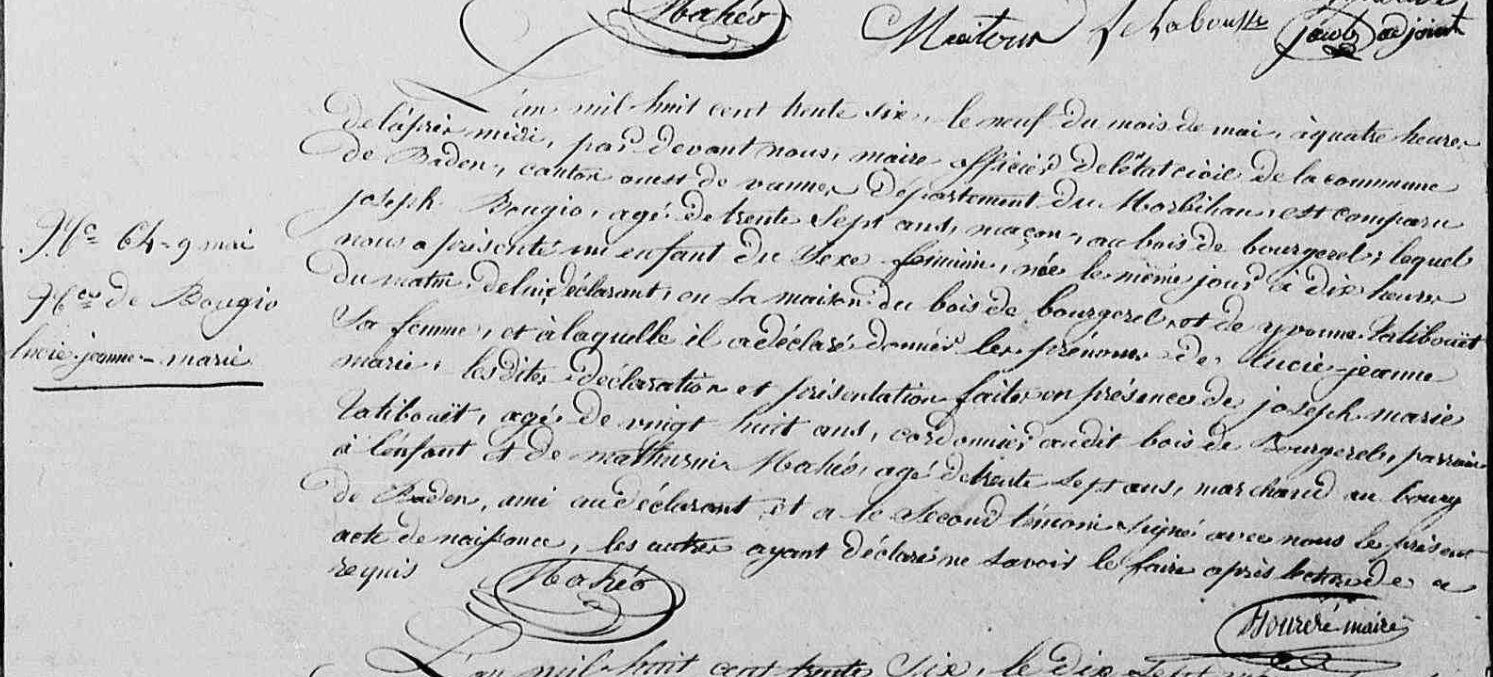 Mahéo
Maitour Le Labousse jacob adjoint
L'an mil huit cent trente six, le neuf du mois de mai, à quatre heures
de l'après midi, par devant nous, maire officier de l'état civil de la commune
de Baden, canton ouest de vannes, département du Morbihan, est comparu
joseph Bougio, agé de trente sept ans, maçon, au bois de bourgerel, lequel
nous a présenté un enfant du sexe féminin, née le même jour à dix heures
du matin, de lui déclarant, en sa maison du bois de bourgerel, et de yvonne Talibouët
sa femme, et à laquelle il a déclaré donner les prénoms de Lucie-jeanne
marie, lesdites déclaration et présentation faites en présence de joseph marie
Talibouët, agé de vingt huit ans, cordonnier audit bois de Bourgerel, parrain
à l'enfant et de mathurin Mahéo, agé de trente sept ans, marchand au bourg
de Baden, ami au déclarant et a le second témoin signé avec nous le présent
acte de naissance, les autres ayant déclaré ne savoir le faire après lecture de ce
requis
N.ce 64 - 9 mai
N.ce de Bougio
lucie-jeanne-marie
Mahéo
maire
L'an mil huit cent trente six, le dix sept